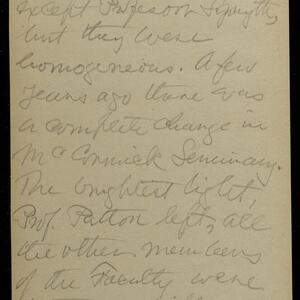 except Professor
but they were
homogeneous. A few
years ago there was
a complete change in
McCormick Seminary.
The brightest light,
Prof. Patton left, all
the other members
of the Faculty were